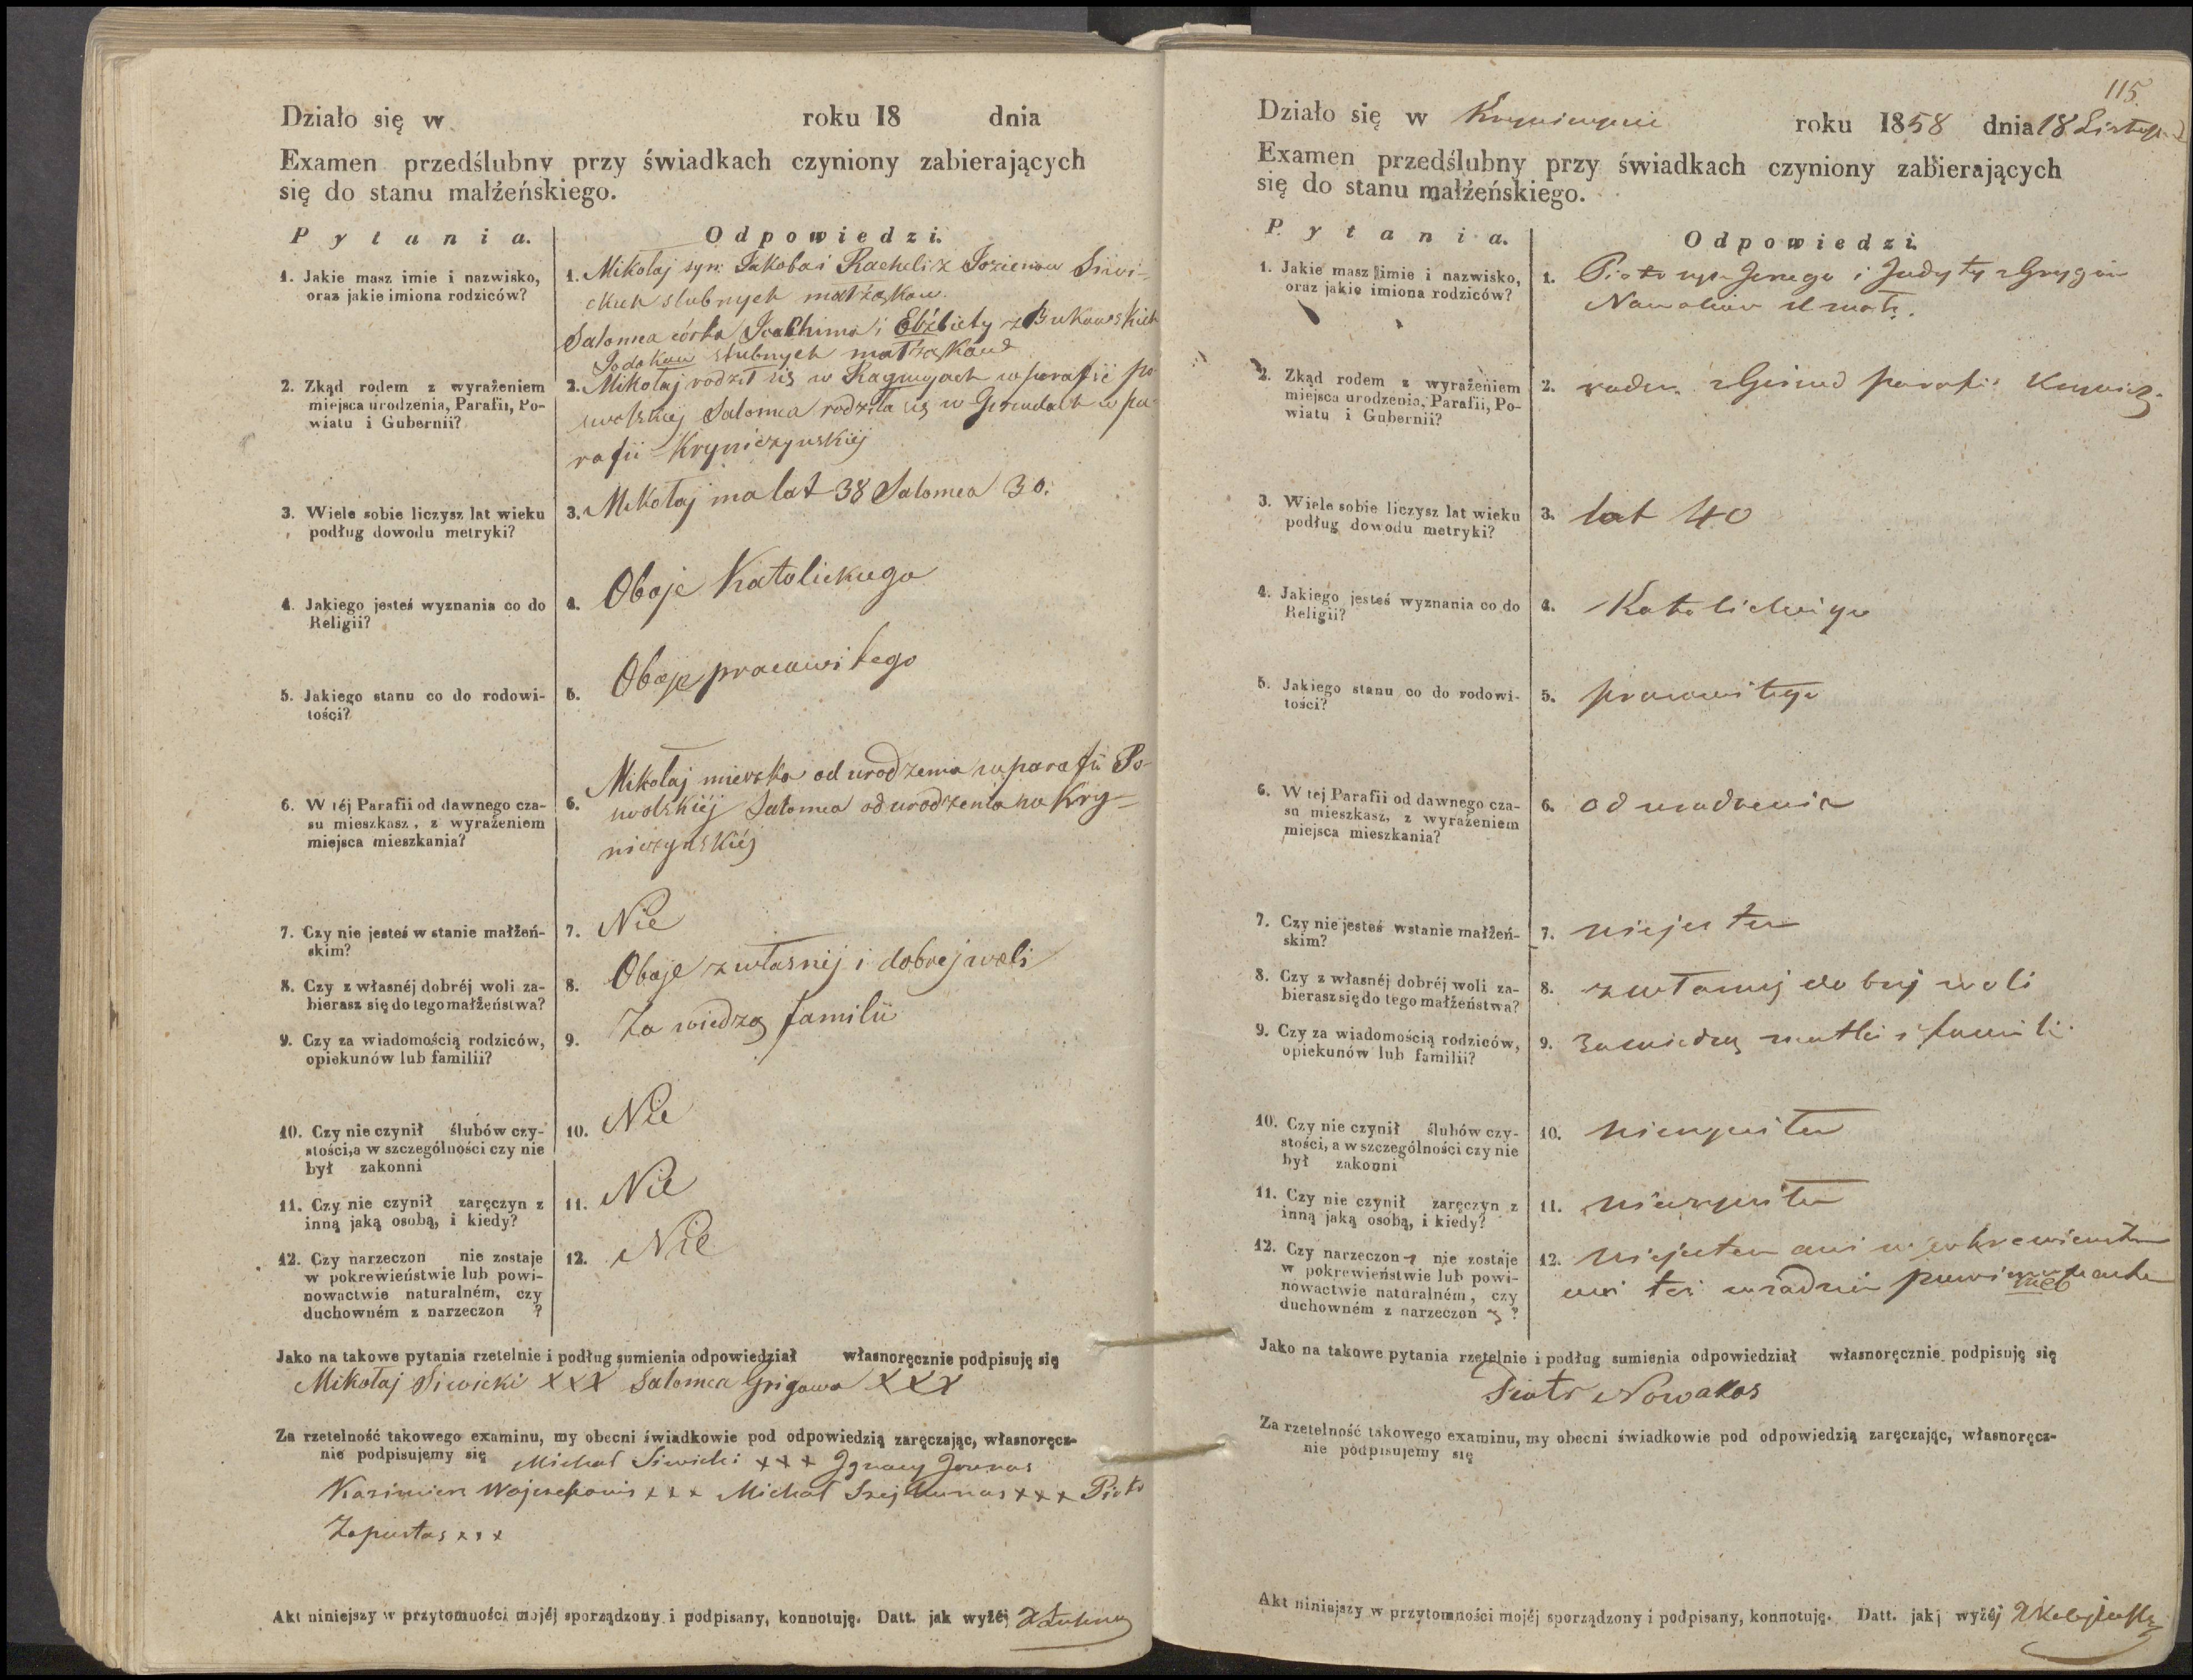 Działo się w roku 18 dnia
Examen przedślubny przy świadkach czyniony zabierających
się do stanu małżeńskiego.
Pytania. Odpowiedzi.
1. Jakie masz imie i nazwisko,
oraz jakie imiona rodziców?
1. Mikołaj syn Jakoba i Racheli z
ślubnych małżąkow.
Salomea córka Joachima i Elżbiety z Bukowskich
ślubnych małżąkow
2. Zkąd rodem z wyrażeniem
miejsca urodzenia, Parafii, Po-
wiatu i Gubernii?
2. Mikołaj rodził się w w parafii Po
wolskiej Salomea rodziła się w w pa-
rafii Kryniczynskiéj
3. Wiele sobie liczysz lat wieku
podług dowodu metryki?
3. Mikołaj ma lat 38 Salomea 30.
4. Jakiego jesteś wyznania co do
Religii?
4. Oboje Katolickiego
5. Jakiego stanu co do rodowi-
tości?
5. Oboje pracowitego
6. W téj Parafii od dawnego cza-
su mieszkasz, z wyrażeniem
miejsca mieszkania?
6. Mikołaj mieszka od urodzenia w parafii Po-
wolskiéj Salomea od urodzenia w Kry-
niczynskiéj
7. Czy nie jesteś w stanie małżeń-
skim?
7. Nie
8. Czy z własnéj dobréj woli za-
bierasz się do tego małżeństwa?
8. Oboje z własnéj i dobrej woli
9. Czy za wiadomością rodziców,
opiekunów lub familii?
9. Za wiedzą familii
10. Czy nie czynił ślubów czy-
stości, a w szczególności czy nie
był zakonni
10. Nie
11. Czy nie czynił zaręczyn z
inną jaką osobą, i kiedy?
11. Nie
12. Czy narzeczon nie zostaje
w pokrewieństwie lub powi-
nowactwie naturalném, czy
duchowném z narzeczon ?
12. Nie
Jako na takowe pytania rzetelnie i podług sumienia odpowiedział własnoręcznie podpisuję się
Mikołaj Siwicki XXX Salomea Grigowa XXX
Za rzetelność takowego examinu, my obecni świadkowie pod odpowiedzią zaręczając, własnoręcz-
nie podpisujemy się Michał Siwicki xxx Ignacy Jounas
Kazimierz xxx Michał xxx Piotr
Zapustas xxx
Akt niniejszy w przytomności mojéj sporządzony i podpisany, konnotuję. Datt. jak wyżéj
115.
Działo się w roku 1858 dnia 18 Listop.
Examen przedślubny przy świadkach czyniony zabierających
się do stanu małżeńskiego.
Pytania. Odpowiedzi.
1. Jakie masz imie i nazwisko,
oraz jakie imiona rodziców?
1. Piotr syn Jerzego i Judyty z Grygow
2. Zkąd rodem z wyrażeniem
miejsca urodzenia, Parafii, Po-
wiatu i Gubernii?
2. rodem parafii
3. Wiele sobie liczysz lat wieku
podług dowodu metryki?
3. lat 40
4. Jakiego jesteś wyznania co do
Religii?
4. Katolickiego
5. Jakiego stanu co do rodowi-
tości?
5. pracowitego
6. W tej Parafii od dawnego cza-
su mieszkasz, z wyrażeniem
miejsca mieszkania?
6. od urodzenia
7. Czy nie jesteś w stanie małżeń-
skim?
7. niejestem
8. Czy z własnéj dobréj woli za-
bierasz się do tego małżeństwa?
8. z własnej dobrej woli
9. Czy za wiadomością rodziców,
opiekunów lub familii?
9. za wiedzą matki i familii
10. Czy nie czynił ślubów czy-
stości, a w szczególności czy nie
był zakonni
10. nieczyniłem
11. Czy nie czynił zaręczyn z
inną jaką osobą, i kiedy?
11. nieczyniłem
12. Czy narzeczony nie zostaje
w pokrewieństwie lub powi-
nowactwie naturalném, czy
duchowném z narzeczoną ?
12. niejestem ani w pokrewienstwie
ani też w żadnem
Jako na takowe pytania rzetelnie i podług sumienia odpowiedział własnoręcznie podpisuję się
Piotr Nowakas
Za rzetelność takowego examinu, my obecni świadkowie pod odpowiedzią zaręczając, własnoręcz-
nie podpisujemy się
Akt niniejszy w przytomności mojéj sporządzony i podpisany, konnotuję. Datt. jak wyżéj